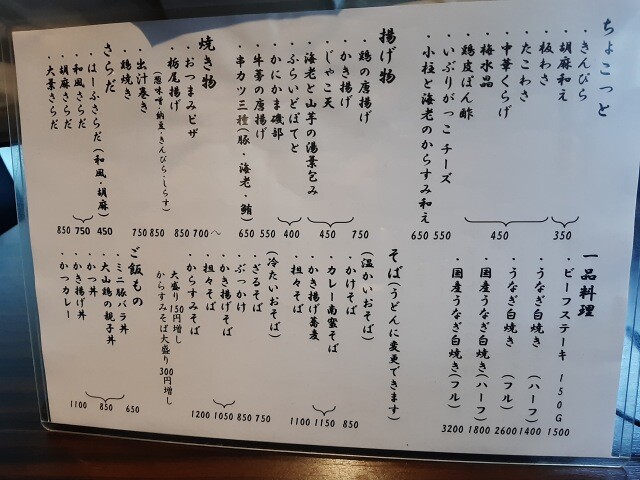 ちょこっと
・きんぴら
・胡麻和え
350
・板わさ
・たこわさ
・中華くらげ
・梅水晶
・鶏皮ぽん酢
450
・いぶりがっこチーズ 550
・小柱と海老のからすみ和え 650
揚げ物
・鶏の唐揚げ 750
・かき揚げ
・じゃこ天
・海老と山芋の湯葉包み
450
・ふらいどぽてと
・かにかま磯部
400
・牛蒡の唐揚げ 550
・串カツ三種(豚・海老・鮪) 650
焼き物
・おつまみピザ 700〜
・栃尾揚げ 850
(葱味噌・納豆・きんぴら・しらす)
・出汁巻き 850
・鶏焼き 750
さらだ
・はーふさらだ(和風・胡麻) 450
・和風さらだ
・胡麻さらだ
750
・大葉さらだ 850
一品料理
・ビーフステーキ 150G 1500
・うなぎ白焼き (ハーフ) 1400
・うなぎ白焼き (フル) 2600
・国産うなぎ白焼き(ハーフ) 1800
・国産うなぎ白焼き(フル) 3200
そば(うどんに変更できます)
(温かいおそば)
・かけそば 850
・カレー南蛮そば
・かき揚げ蕎麦
1150
・担々そば 1100
(冷たいおそば)
・ざるそば 750
・ぶっかけ 850
・かき揚げそば
・担々そば
1050
・からすみそば 1200
大盛り150円増し
からすみそば大盛り300円増し
ご飯もの
・ミニ豚バラ丼 650
・大山鶏の親子丼
・かつ丼
・かき揚げ丼
850
・かつカレー 1100